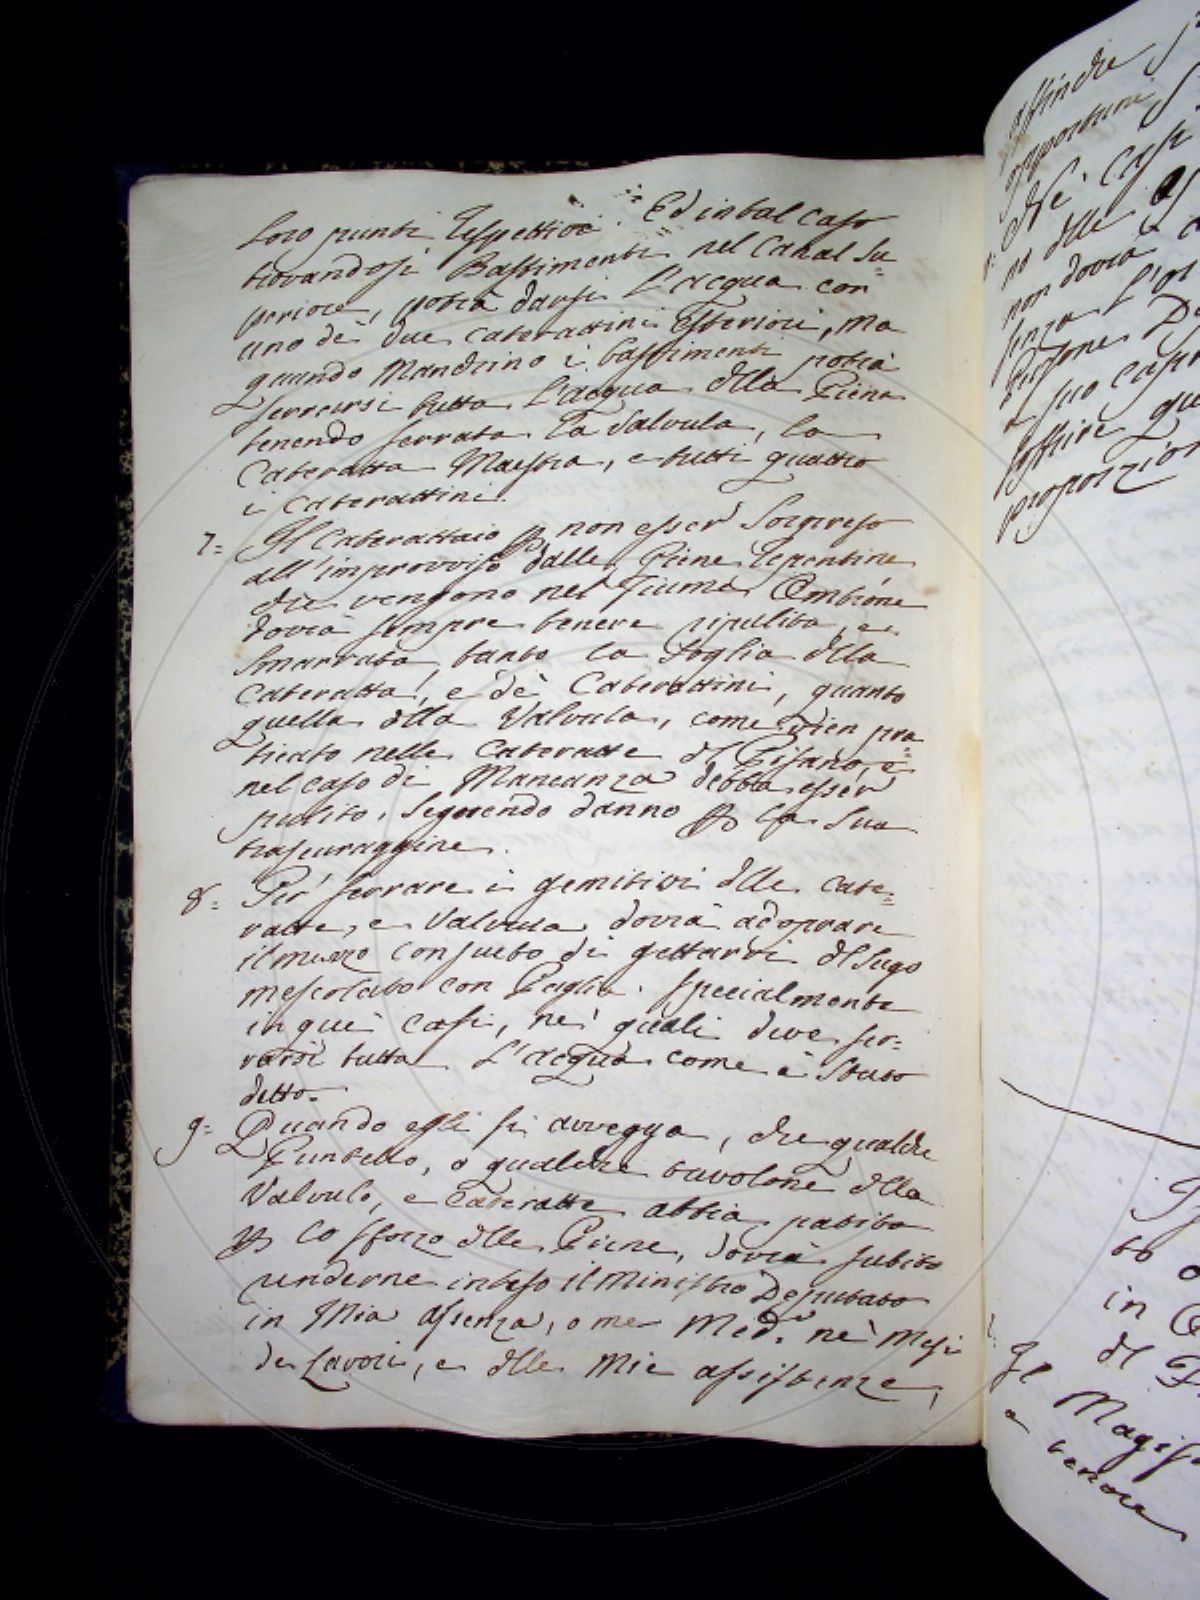 Loro punti respettivi. Ed in tal caso
trovandosi Bastimenti nel Canal Su=
periore, potrà darsi L'acqua con
uno dè due caterattini Esteriori, Ma
quando Manchino i bastimenti potrà
serrarsi tutta L'acqua dlla Piena
tenendo serrata la Valvula, la
Cateratta Maestra, e tutti quattro
i caterattini.
7= Il Caterattaio p non esser Sorpreso
all'improvviso dalle Piene repentine
che vengono nel Fiume Ombrone
dovrà sempre tenere ripulita, e
smarrata, tanto la Soglia dlla
Cateratta, e dè Caterattini, quanto
quella dlla Valvula, come vien pra=
ticato nelle Cateratte dl Pisano, e
nel caso di Mancanza debba essèr
punito, Seguendo danno p la Sua
trascuraggine.
8= Per serrare i gemitivi dlle cate=
ratte, e Valvula dovrà adoprare
il mezzo consueto di gettarvi dl Sugo
mescolato con Paglia. specialmente
in quei casi, nei quali deve ser=
rarsi tutta L'acqua come è Stato
detto.
9= Quando egli si avvegga, che qualche
Puntello, o qualche tavolone dlla
Valvula, e Cateratte abbia patito
p lo sforzo dlle Piene, dovrà subito
renderne inteso il Ministro Deputato
in Mia assenza, o me Med.º nè Mesi
de Lavori, e dlle Mie assistenze,
affinche
opportuni
che casi
no dlle
non dovrà
senza
Persone
a suo
soffrire
proporzion
in
dl
Il Magis
a tenore